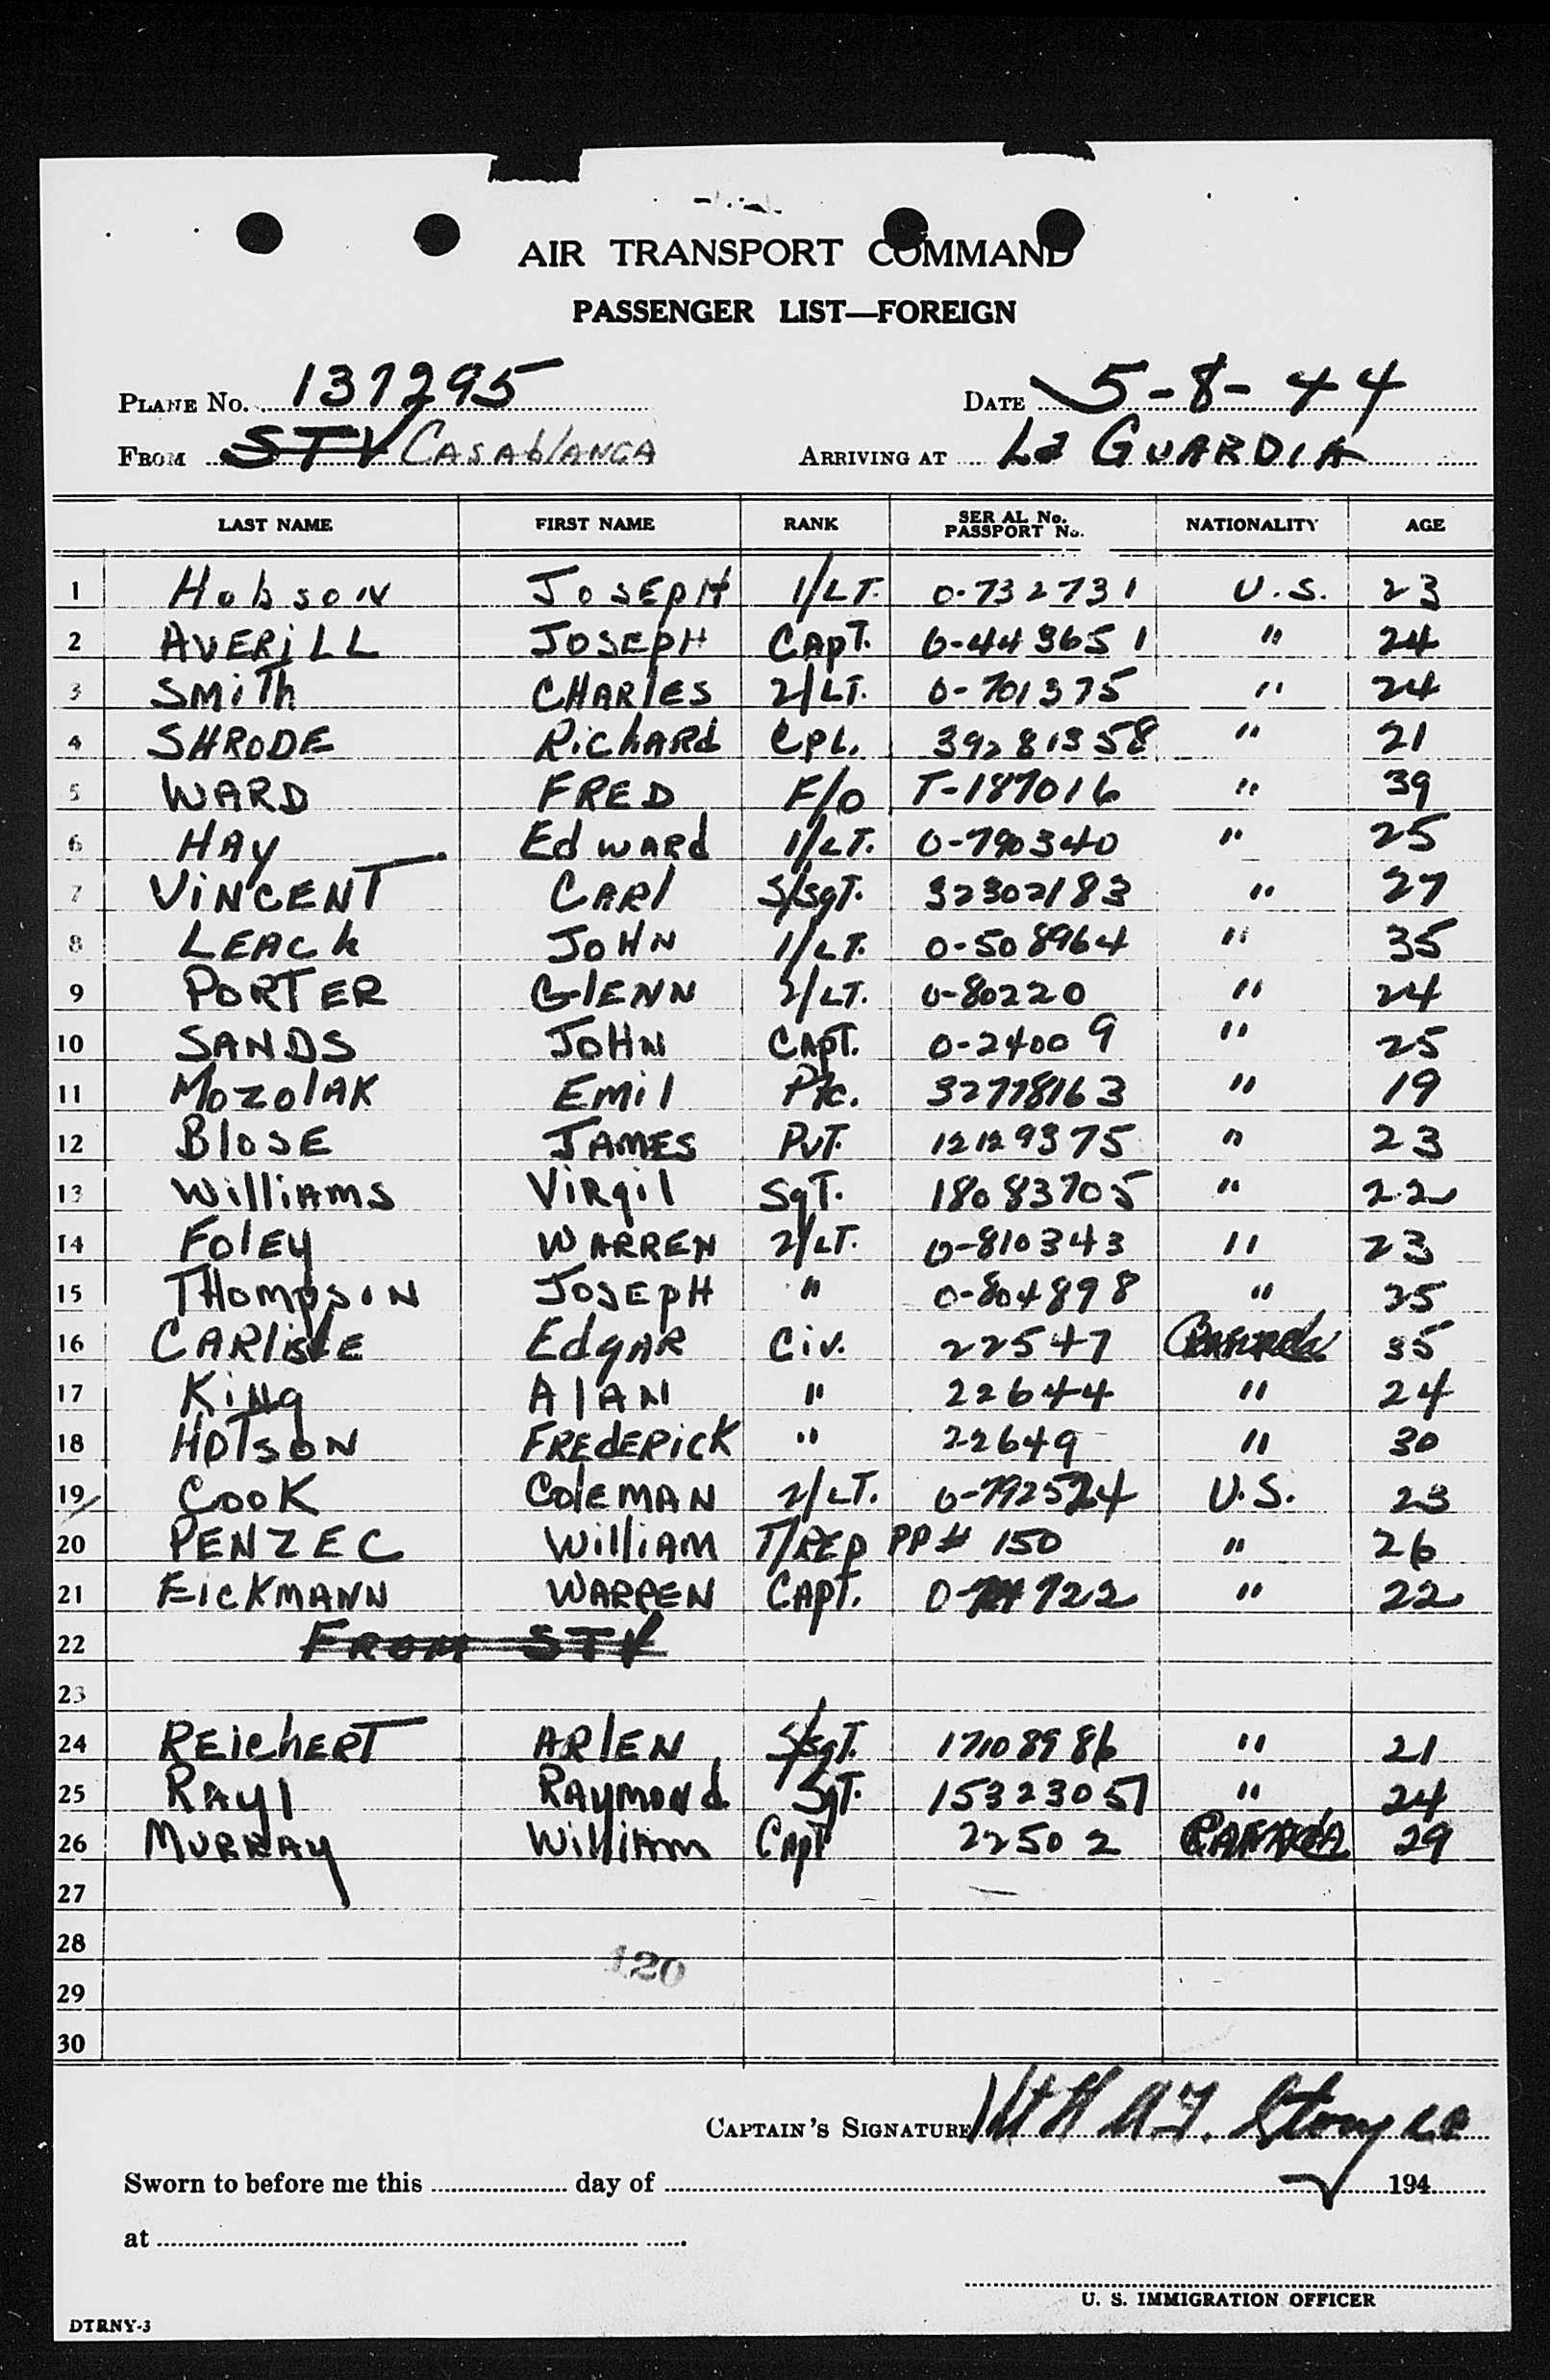 AIR TRANSPORT COMMAND
PASSENGER LIST—FOREIGN
PLANE NO. 137295 DATE 5-8-44
FROM STV CASAblANCA ARRIVING AT La GUARDIA
LAST NAME FIRST NAME RANK SERIAL No. PASSPORT No. NATIONALITY AGE
1 Hobson JOSEPH 1/LT. 0-732731 U.S. 23
2 AVERiLL JOSEPH CAPT. 0-443651 " 24
3 SMiTh CHARlES 2/LT. 0-701375 " 24
4 SHRODE RichARd CPL. 39281358 " 21
5 WARD FRED F/O T-187016 " 39
6 HAy EdwARd 1/LT. 0-790340 " 25
7 ViNCENT CARl S/SgT. 32302183 " 27
8 LEACh JOHN 1/LT. 0-508964 " 35
9 PORTER GlENN 2/LT. 0-80220 " 24
10 SANDS JOHN CAPT. 0-24009 " 25
11 MOZOlAK Emil Pfc. 32778163 " 19
12 BlOSE JAMES PVT. 12129375 " 23
13 WilliAMS ViRgil SgT. 18083705 " 22
14 FOlEy WARREN 2/LT. 0-810343 " 23
15 THOMPSON JOSEPH " 0-804898 " 25
16 CARlislE EdgAR Civ. 22547 CANAdA 35
17 KiNg AlAN " 22644 " 24
18 HOTSON FREdERiCK " 22649 " 30
19 COOK ColEMAN 2/LT. 0-792524 U.S. 23
20 PENZEC WilliAM T/REP PP# 150 " 26
21 EiCKMANN WARREN CAPT. 0- 722 " 22
22 FROM STV
23
24 REichERT ARlEN S/SgT. 17108986 " 21
25 RAyl RAyMONd SgT. 15323051 " 24
26 MURRAy WilliAM CApT 22502 CANAdA 29
27
28
120
29
30
CAPTAIN'S SIGNATURE
Sworn to before me this day of 194
at
U. S. IMMIGRATION OFFICER
DTRNY-3